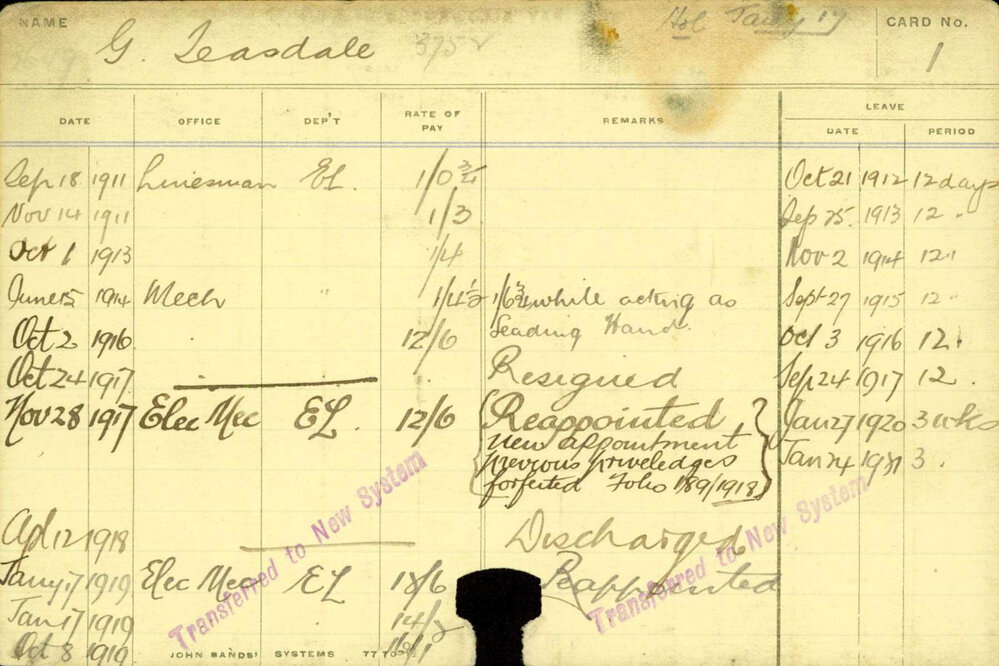 NAME G. Teasdale 3758 Hol Jany 17 CARD No. 1
DATE OFFICE DEP'T RATE OF PAY REMARKS LEAVE
DATE PERIOD
Sep 18 1911 Linesman EL. 1/0 3/4 Oct 21 1912 12 days
Nov 14 1911 1/3 Sep 25 1913 12 "
Oct 1 1913 1/4 Nov 2 1914 12 "
June 15 1914 Mech " 1/4 1/2 1/6 3/4 while acting as Sept 27 1915 12 "
Leading Hand.
Oct 2 1916 12/6 Oct 3 1916 12 "
Oct 24 1917 Resigned Sep 24 1917 12 .
Nov 28 1917 Elec Mec EL. 12/6 Reappointed Jan 27 1920 3 wks
new appointment
previous priveledges Jan 24 1921 3 .
forfeited Folio 189/1918
Apl 12 1918 Discharged
Jany 17 1919 Elec Mec EL Reappointed
Jan 17 1919 14/2
Oct 8 1919
Transferred to New System
Transferred to New System
JOHN SANDS' SYSTEMS